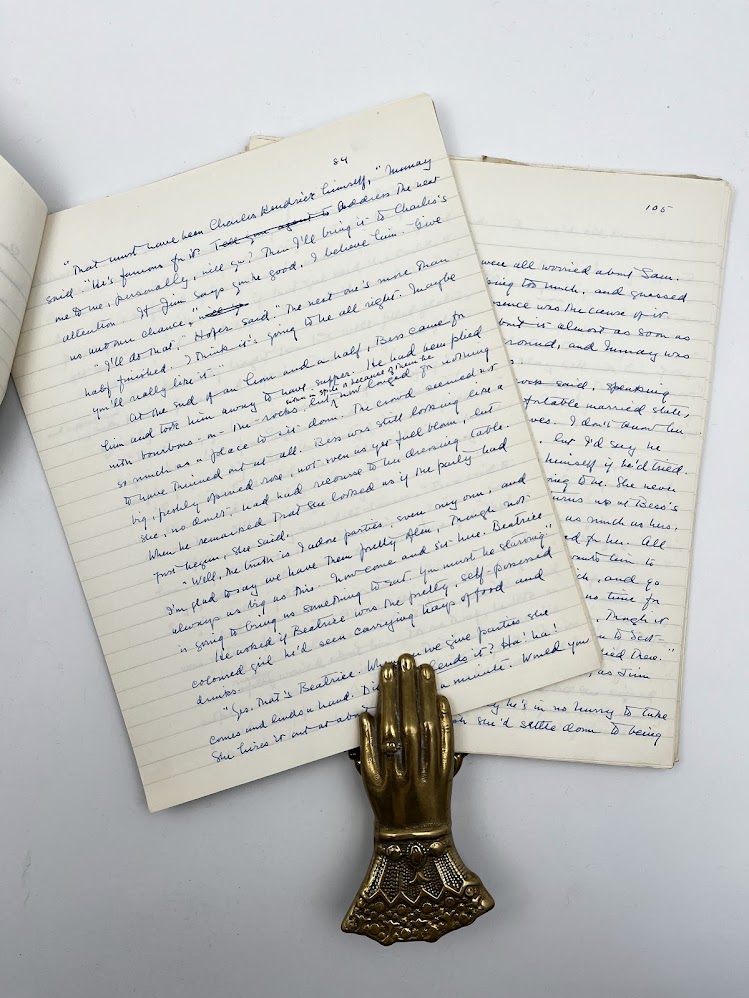 84
"That must have been Charles Hendrick himself," Immay
said. "He's famous for it. Tell your agent to Address the next
me to me, personally, will you? Then I'll bring it to Charles's
attention. If Jim says you're good, I believe him. Give
us another chance,"
"I'll do that," Hoper said. "The next one's more than
half finished. I think it's going to be all right. Maybe
you'll really like it."
At the end of an hour and a half, Bess came for
him and took him away to have supper. He had been plied
with bourbons-on-the-rocks, but, in spite or because of them he now longed for nothing
so much as a place to sit down. The crowd seemed not
to have thinned out at all. Bess was still looking like a
big, freshly opened rose, not even as yet full blown, but
she, no doubt, had had recourse to her dressing-table.
When he remarked that she looked as if the party had
just begun, she said,
"Well, the truth is I adore parties, even my own, and
I'm glad to say we have them pretty often, though not
always as big as this. Now come and sit here. Beatrice
is going to bring us something to eat. You must be starving."
He asked if Beatrice was the pretty, self-possessed
coloured girl he'd seen carrying trays of food and
drinks.
"Yes. That's Beatrice. we give parties she
comes and lends a hand. lends it? Ha! ha!
She hires it out at about a minute. Would you
105
were all worried about Sam.
too much, and guessed
was the cause of it
it almost as soon as
and Immay was
said, speaking
married state,
I don't know her
but I'd say he
himself if he'd tried.
to us. She never
turns up at Bess's
as much as hers.
for her. All
to
and go
no time for
though it
to
there."
as Jim
he's in no hurry to take
she'd settle down to being